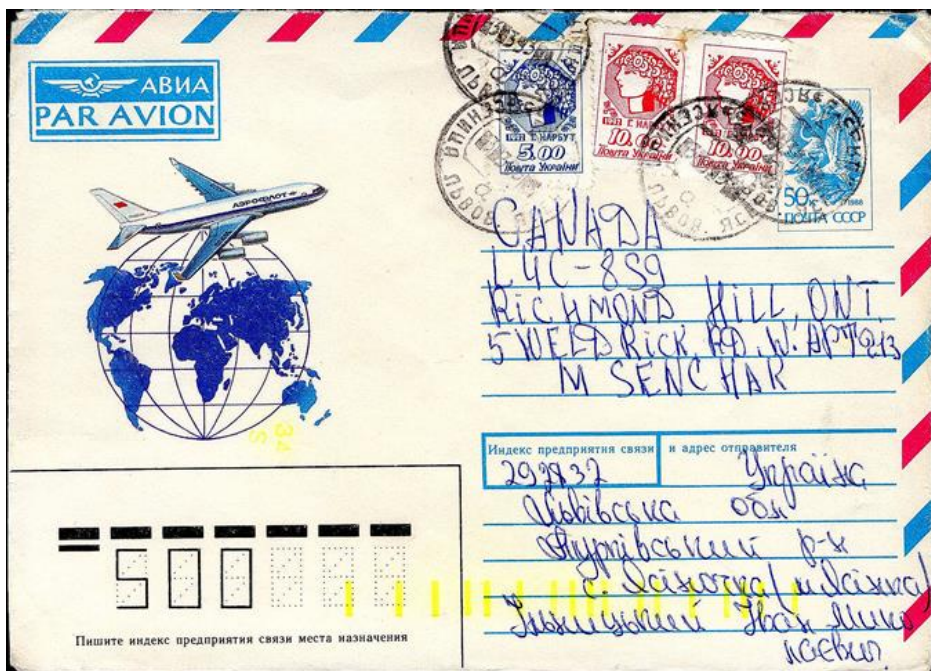 АВИА
PAR AVION
АЭРОФЛОТ
1992 Г. НАРБУТ
5.00
Пошта України
1992 Г. НАРБУТ
10.00
Пошта України
1992 Г. НАРБУТ
10.00
Пошта України
50к
1988
ПОЧТА СССР
CANADA
L4C-8S9
RICHMOND HILL, ONT.
5 WELDRICK, RD. W. APT 213
M SENCHAR
Индекс предприятия связи и адрес отправителя
Україна
Львівська обл
Турківський р-н
с.
Іван Мико
лаєвич
34
S
500
Пишите индекс предприятия связи места назначения